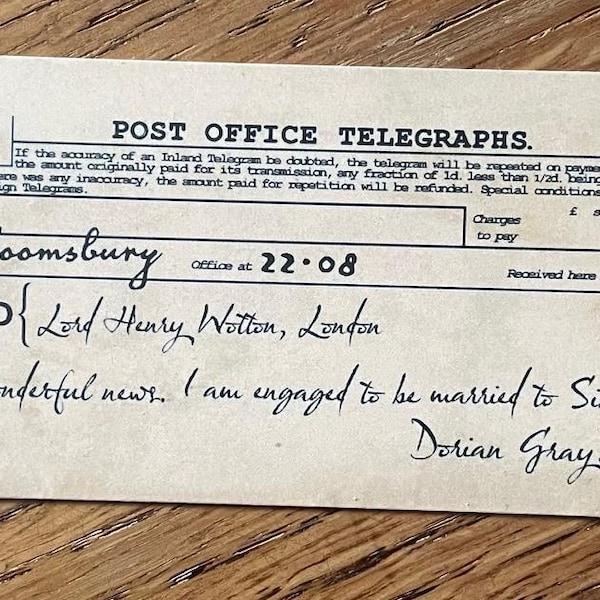 POST OFFICE TELEGRAPHS.
If the accuracy of an Inland Telegram be doubted, the telegram will be repeated on payme
the amount originally paid for its transmission, any fraction of 1d. less than 1/2d. being
ere was any inaccuracy, the amount paid for repetition will be refunded. Special conditions
ign Telegrams.
Charges £ s
to pay
oomsbury Office at 22·08 Received here
Lord Henry Wotton, London
onderful news. I am engaged to be married to Si
Dorian Gray